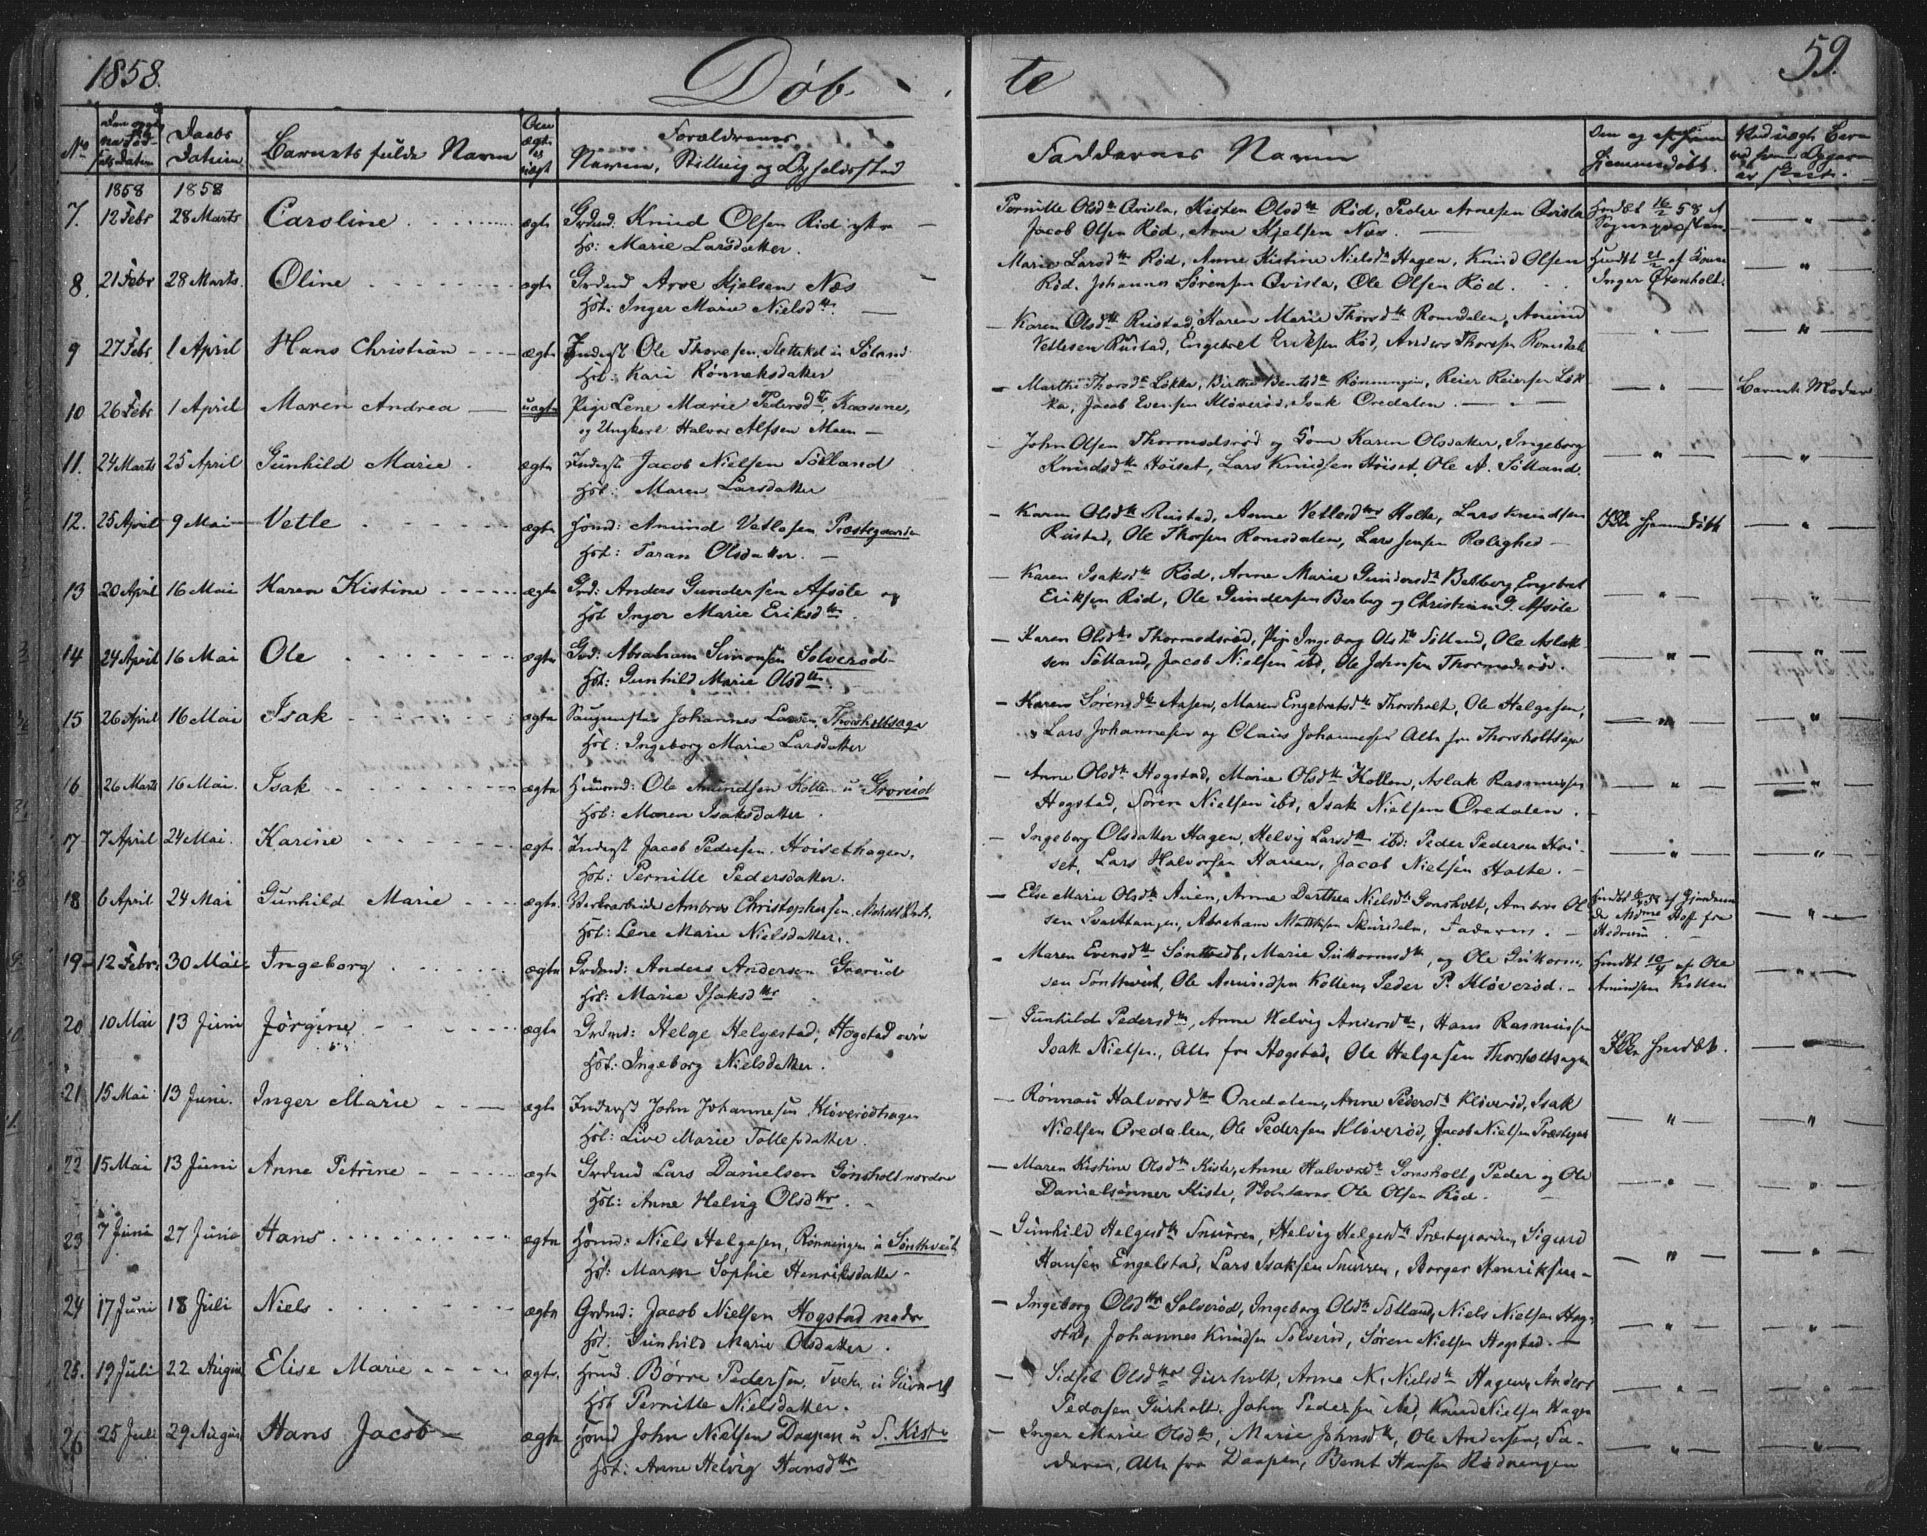 1858.
Döb
te
59.
No
Daabs Datum
Barnets fulde Navn
Forældrenes Navne, Stilling og Opholdssted
Faddernes Navne
1858 1858
7. 12 Febr 28 Marts Caroline ægte Grdmd. Knud Olsen Röd
Hs: Marie Larsdatter.
Pernille Olsdtr Qvisla, Kisten Olsdtr Röd, Peder Arnesen Qvisla
Jacob Olsen Röd, Arve Kjelsen Næs.
8. 21 Febr 28 Marts. Oline ægte Grdmd Arve Kjelsen Næs
Hst: Inger Marie Nielsdtr.
Maria Larsdtr Röd, Anne Kistine Nielsdtr Hagen, Knud Olsen
Röd, Johannes Sörensen Qvisla, Ole Olsen Röd.
Inger Ørenholt.
9 27 Febr. 1 April Hans Christian ægte Inderst Ole Thoresen
Hst: Kari Rönneksdatter
Karen Olsdtr Rustad, Karen Marie Thorsdtr Romsdalen, Amund
Vetlesen Rustad, Engebret Eriksen Röd, Anders Thoresen Romsdal
10 26 Febr. 1 April Maren Andrea uægte Pige Lene Marie Pedersdtr Kaasene,
og Ungkarl Halvor Alfsen Moen
Marthe Thorsdtr Løkka, Birthe Bentsdtr Rönningen, Reier Reiersen Løk
ka, Jacob Evensen Klöveröd, Isak Oredalen.
Barnets Moder
11. 24 Marts 25 April Gunhild Marie ægte Inderst Jacob Nielsen Sölland
Hst: Maren Larsdatter
John Olsen Thormodsröd og Kone Karen Olsdatter, Ingeborg
Knudsdtr Höiset, Lars Knudsen Höiset, Ole A. Sölland.
12. 25 April 9 Mai Vetle ægte Hsmd: Amund Vetlesen Præstegaarden
Hst: Taran Olsdatter.
Karen Olsdtr Rustad, Anne Vetlesdtr Holte, Lars Knudsen
Rustad, Ole Thorsen Romsdalen, Lars Jensen Rolighed
Ikke hjemmedöbt
13 20 April 16 Mai Karen Kistine ægte Grd: Anders Gundersen Afsöle og
Hst Inger Marie Eriksdtr.
Karen Isaksdtr Röd, Anne Marie Gundersdtr Berberg, Engebret
Eriksen Röd, Ole Gundersen Berbry og Christian G. Afsöle
14 24 April 16 Mai Ole ægte Grd: Abraham Simonsen Solveröd
Hst: Gunhild Marie Olsdtr.
Karen Olsdtr Thormodsröd, Pige Ingeborg Olsdtr Sölland, Ole Aslak-
sen Sölland, Jacob Nielsen ibd, Ole Johnsen Thormodsröd.
15 26 April 16 Mai Isak ægte Saugmester Johannes Larsen, Thorsholtsaga
Hst: Ingeborg Marie Larsdatter
Karen Sörensdtr Aasen, Maren Engebretsdtr Thorsholt, Ole Helgesen,
Lars Johannesen og Claus Johannesen Alle fra Thorsholtsaga
16 26 Marts 16 Mai. Isak ægte Huusmd: Ole Amundsen Kolten u Groveröd
Hst: Maren Isaksdatter.
Anne Olsdtr Hogstad, Marie Olsdtr Kollen, Aslak Rasmussen
Hogstad, Sören Nielsen ibd, Isak Nielsen Oredalen.
17 7 April 24 Mai. Karine ægte Inderst Jacob Pedersen, Höisethagen,
Hst: Pernille Pedersdatter.
Ingeborg Olsdatter Hagen, Helvig Larsdtr ibd: Peder Pedersen Höi-
set, Lars Halvorsen Haven, Jacob Nielsen Holte.
18 6 April 24 Mai Gunhild Marie ægte. Værkarbeider Ambros Christophersen,
Hst: Lene Marie Nielsdatter.
Else Marie Olsdtr Auen, Anne Dorthea Nielsdtr Gonsholt, Ambros Ol
sen Svartangen, Abraham Mathisen Skuirdalen, Faderen.
19 12 Febr. 30 Mai Ingeborg ægte Grdmd: Anders Andersen Goveröd
Hst: Marie Isaksdtr
Maren Evensdtr Sönthvedt, Marie Guttormsdtr, og Ole Guttorm-
sen Sönthvedt, Ole Amundsen Kolten, Peder P. Klöveröd.
Hmdöbt 10/4 af Ole
Amundsen Kolten
20 10 Mai 13 Juni Jörgine ægte Grdmd: Helge Helgestad, Hogstad övre
Hst: Ingeborg Nielsdatter.
Gunhild Pedersdtr, Anne Helvig Andersdtr, Hans Rasmussen
Isak Nielsen, Alle fra Hogstad, Ole Helgesen Thorsholtsagen
Ikke hmdöbt.
21 15 Mai 13 Juni. Inger Marie ægte Inderst John Johannesen Klöverödhagen
Hst: Live Marie Tollefsdatter.
Rönnau Halvorsdtr Oredalen, Anne Pedersdtr Klöveröd, Isak
Nielsen Oredalen, Ole Pedersen Klöveröd, Jacob Nielsen Præstegd
22 15 Mai 13 Juni Anne Petrine ægte Grdmd Lars Danielsen Gonsholt nordre
Hst: Anne Helvig Olsdtr.
Maren Kistine Olsdtr Kiste, Anne Halvorsdtr Gonsholt, Peder og Ole
Danielsönner Kiste, Ole Olsen Röd.
23 7 Juni 27 Juni Hans ægte Hsmd: Niels Helgesen, Rönningen u Sönthvedt
Hst: Maren Sophie Henriksdatter
Gunhild Helgesdtr Snurren, Helvig Helgesdtr Præstegaarden, Sigurd
Hansen Engelstad, Lars Isaksen Snurren, Borger Henriksen
24 17 Juni 18 Juli Niels ægte Grdmd: Jacob Nielsen Hogstad nedre
Hst: Gunhild Marie Olsdatter.
Ingeborg Olsdtr Solveröd, Ingeborg Olsdtr Sölland, Niels Nielsen Hog-
stad, Johannes Knudsen Solveröd, Sören Nielsen Hogstad.
25. 19 Juli 22 August Elise Marie ægte. Hsmd. Börre Pedersen,
Hst Pernille Nielsdatter.
Sidsel Olsdtr Gurholt, Anne N. Nielsdtr Hagen, Anders
Pedersen Gurholt, John Pedersen ibd, Knud Nielsen Hagen
26 25 Juli 29 August Hans Jacob ægte Hsmd John Nielsen Daapen u S. Kiste
Hst: Anne Helvig Hansdtr
Inger Marie Olsdtr, Marie Johnsdtr, Ole Andersen, Fa-
deren, Alle fra Daapen, Bernt Hansen Rödningen